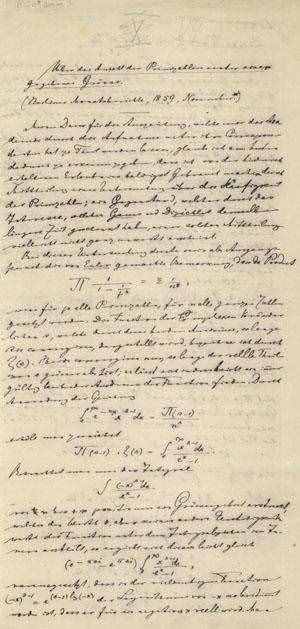 Ueber die Anzahl der Primzahlen unter einer
gegebenen Grösse.
(Berliner Monatsberichte, 1859, November)
Meinen Dank für die Auszeichnung, welche mir die Aka-
demie durch die Aufnahme unter ihre Correspon-
denten hat zu Theil werden lassen, glaube ich am besten
dadurch zu erkennen zu geben, dass ich von der hierdurch
erhaltenen Erlaubniss baldigst Gebrauch mache durch
Mittheilung einer Untersuchung über die Häufigkeit
der Primzahlen; ein Gegenstand, welcher durch das
Interesse, welches Gauss und Dirichlet demselben
längere Zeit geschenkt haben, einer solchen Mittheilung
vielleicht nicht ganz unwerth erscheint.
Bei dieser Untersuchung diente mir als Ausgangs-
punkt die von Euler gemachte Bemerkung, dass das Product
∏ 1/(1 − 1/p^s) = Σ 1/n^s,
wenn für p alle Primzahlen, für n alle ganzen Zahlen
gesetzt werden. Die Function der complexen Veränder-
lichen s, welche durch diese beiden Ausdrücke, so lange
sie convergiren, dargestellt wird, bezeichne ich durch
ζ(s). Beide convergiren nur, so lange der reelle Theil
von s grösser als 1 ist; es lässt sich indess leicht ein immer
gültig bleibender Ausdruck der Function finden. Durch
Anwendung der Gleichung
∫₀^∞ e^(−nx) x^(s−1) dx = Π(s−1)/n^s
erhält man zunächst
Π(s−1) ζ(s) = ∫₀^∞ x^(s−1) dx/(e^x − 1).
Betrachtet man nun das Integral
∫ (−x)^(s−1) dx/(e^x − 1)
von +∞ bis +∞ positiv um ein Grössengebiet erstreckt,
welches den Werth 0, aber keinen andern Unstetigkeits-
werth der Function unter dem Integralzeichen im In-
nern enthält, so ergiebt sich dieses leicht gleich
(e^(−πsi) − e^(πsi)) ∫₀^∞ x^(s−1) dx/(e^x − 1),
vorausgesetzt, dass in der vieldeutigen Function
(−x)^(s−1) = e^((s−1) log(−x)) der Logarithmus von −x so bestimmt
worden ist, dass er für ein negatives x reell wird.